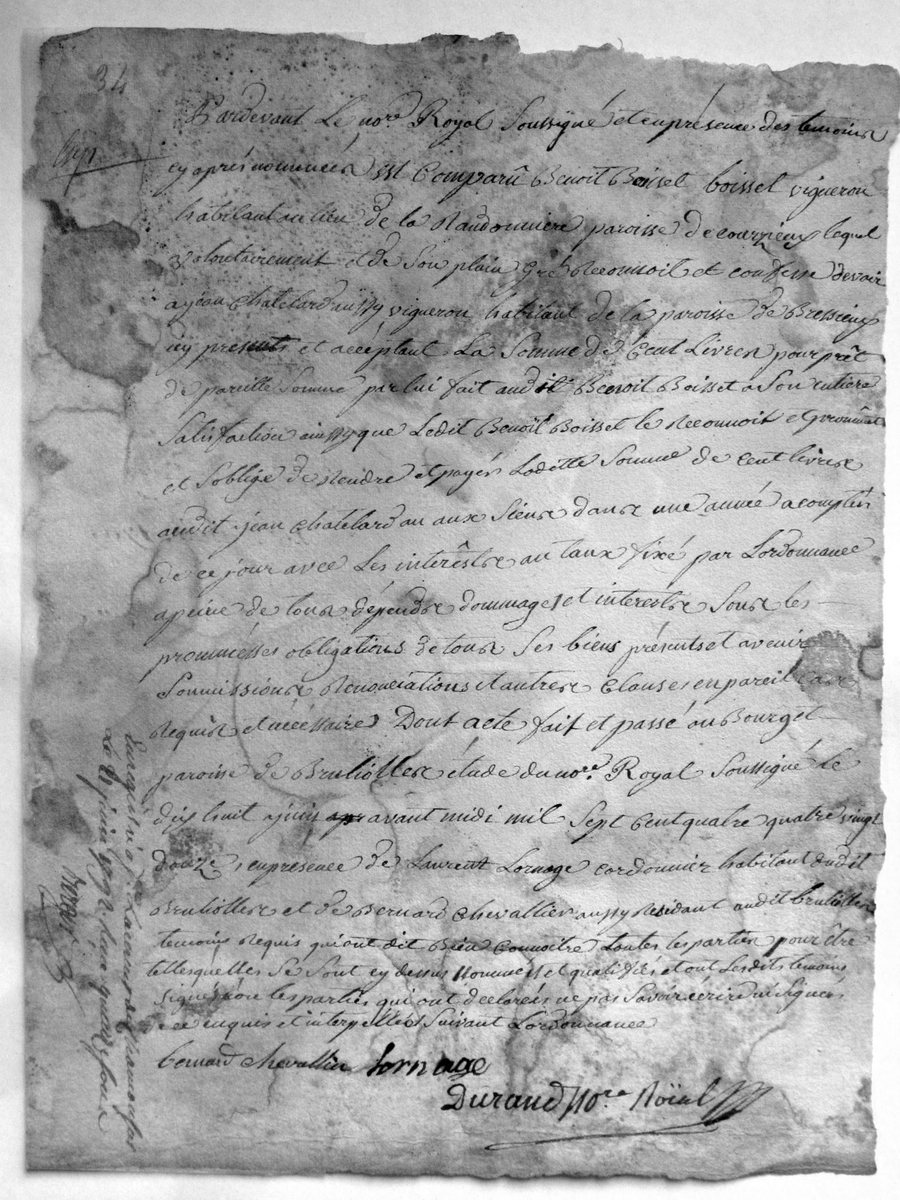 34
Exp.
Pardevant Le no.re Royal Soussigné et en présence des temoins
cy aprés nommés Est Comparû Benoit Boisset boisset vigneron
habitant au lieu de la Randonniere paroisse de courzieux lequel
volontairement et de Son plain Gré Reconnoit et confesse devoir
a jean Chatelard aussy vigneron habitant de la paroisse de Bressieux
cy present et acceptant La Somme de Cent Livres pour prêt
de pareille Somme par lui fait audit Benoit Boisset a Son entiere
Satisfation ainssy que Ledit Benoit Boisset le Reconnoit et promet
et S'oblige de Rendre et payér Ladette Somme de cent livres
audit jean Chatelard ou aux Siens dans une année a comptér
de ce jour avec Les interêsts au taux fixé par L'ordonnance
apeine de tous dépends dommages et interests Sous les
prommésses obligations de tous Ses biens présents et avenir
Soumissions Renonciations et autres Clauses en pareil cas
Requis et nécéssaire Dont acte fait et passé au Bourget
paroisse de Brulliolles étude du no.re Royal Soussigné le
dix huit ajuin avant midi mil Sept Cent quatre quatre vingt
douze en presence de Laurent Lornage cordonnier habitant dudit
Brulliolles et de Bernard Chevallier aussy Résidant audit brulliolles
temoins Requis qui ont dit Bien Connoitre toutes les parties pour être
telles quelles Se Sont cy dessus Nommés et qualifiés et ont Lesdits temoins
Signé non les parties qui ont declarées ne pas Savoir ecrire ni Signer
de ce enquis et interpellés Suivant L'ordonnance
bernard chevallier lornage
Durand No.re Roïal
Enregistré a
Le juin 1792 Reçu quinze Sous